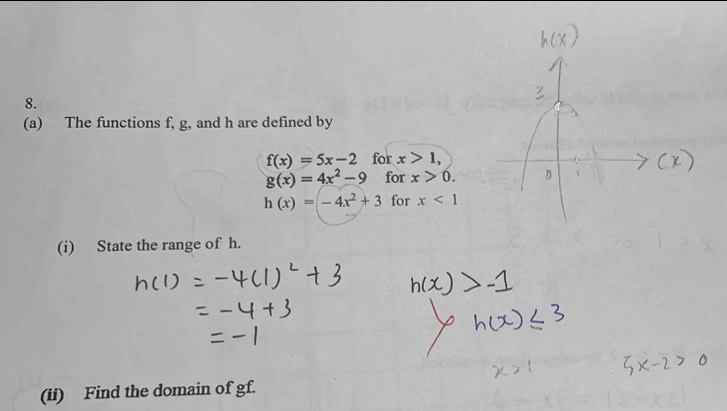 h(x)
3
8.
(a) The functions f, g, and h are defined by
f(x) = 5x−2 for x > 1,
g(x) = 4x² −9 for x > 0.
h (x) = − 4x² + 3 for x < 1
0 1 (x)
(i) State the range of h.
h(1) = -4(1)² + 3
= -4+3
= -1
h(x) > -1
h(x) ≤ 3
x > 1 5x-2 > 0
(ii) Find the domain of gf.